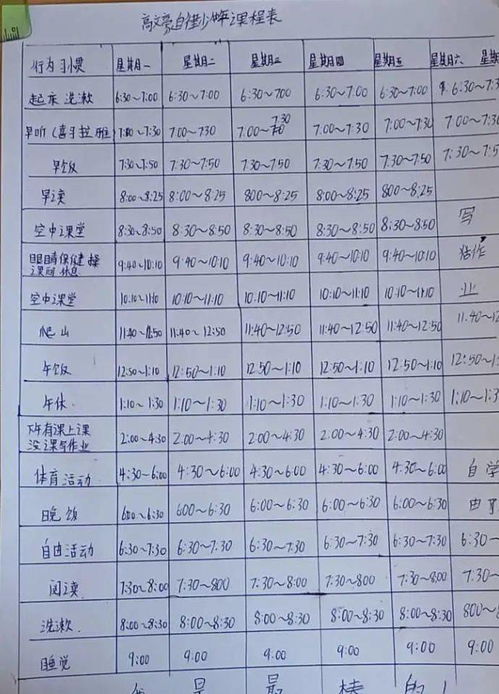 高文 自 课程表
行为习惯 星期一 星期二 星期三 星期四 星期五 星期六 星期
起床洗漱 6:30~7:00 6:30~7:00 6:30~700 6:30~7:00 6:30~7:00 6:30~7:3
早听(喜马拉雅 7:00~7:30 7:00~730 7:00~7:30 7:00~7:30 7:00~7:30 7:00~7:3
早饭 7:30~7:50 7:30~7:50 7:30~7:50 7:30~7:50 7:30~7:50 7:30~7:5
早读 8:00~8:25 8:00~8:25 800~8:25 8:00~8:25 800~8:25
空中课堂 8:30~8:50 8:30~8:50 8:30~8:50 8:30~8:50 8:30~8:50 写
眼睛保健操 课间休息 9:40~10:10 9:40~10:10 9:40~10:10 9:40~10:10 9:40~10:10 作
空中课堂 10:10~11:10 10:10~11:10 10:10~11:10 10:10~11:10 10:10~11:10 业
爬山 11:40~12:50 11:40~12:50 11:40~12:50 11:40~12:50 11:40~12:50 11:40~12
午饭 12:50~1:10 12:50~1:10 12:50~1:10 12:50~1:10 12:50~1:10 12:50~1
午休 1:10~1:30 1:10~1:30 1:10~1:30 1:10~1:30 1:10~1:30 1:10~1:3
下午有课上课 没课写作业 2:00~4:30 2:00~4:30 2:00~4:30 2:00~4:30 2:00~4:30
体育活动 4:30~6:00 4:30~6:00 4:30~6:00 4:30~6:00 4:30~6:00 自学
晚饭 6:00~6:30 600~6:30 6:00~6:30 6:00~6:30 6:00~6:30 由
自由活动 6:30~7:30 6:30~7:30 6:30~7:30 6:30~7:30 6:30~7:30 6:30~
阅读 7:30~8:00 7:30~800 7:30~8:00 7:30~800 7:30~8:00 7:30~
洗漱 8:00~8:30 8:00~8:30 8:00~8:30 8:00~8:30 8:00~8:30 800~
睡觉 9:00 9:00 9:00 9:00 9:00 9:00
是最棒的!